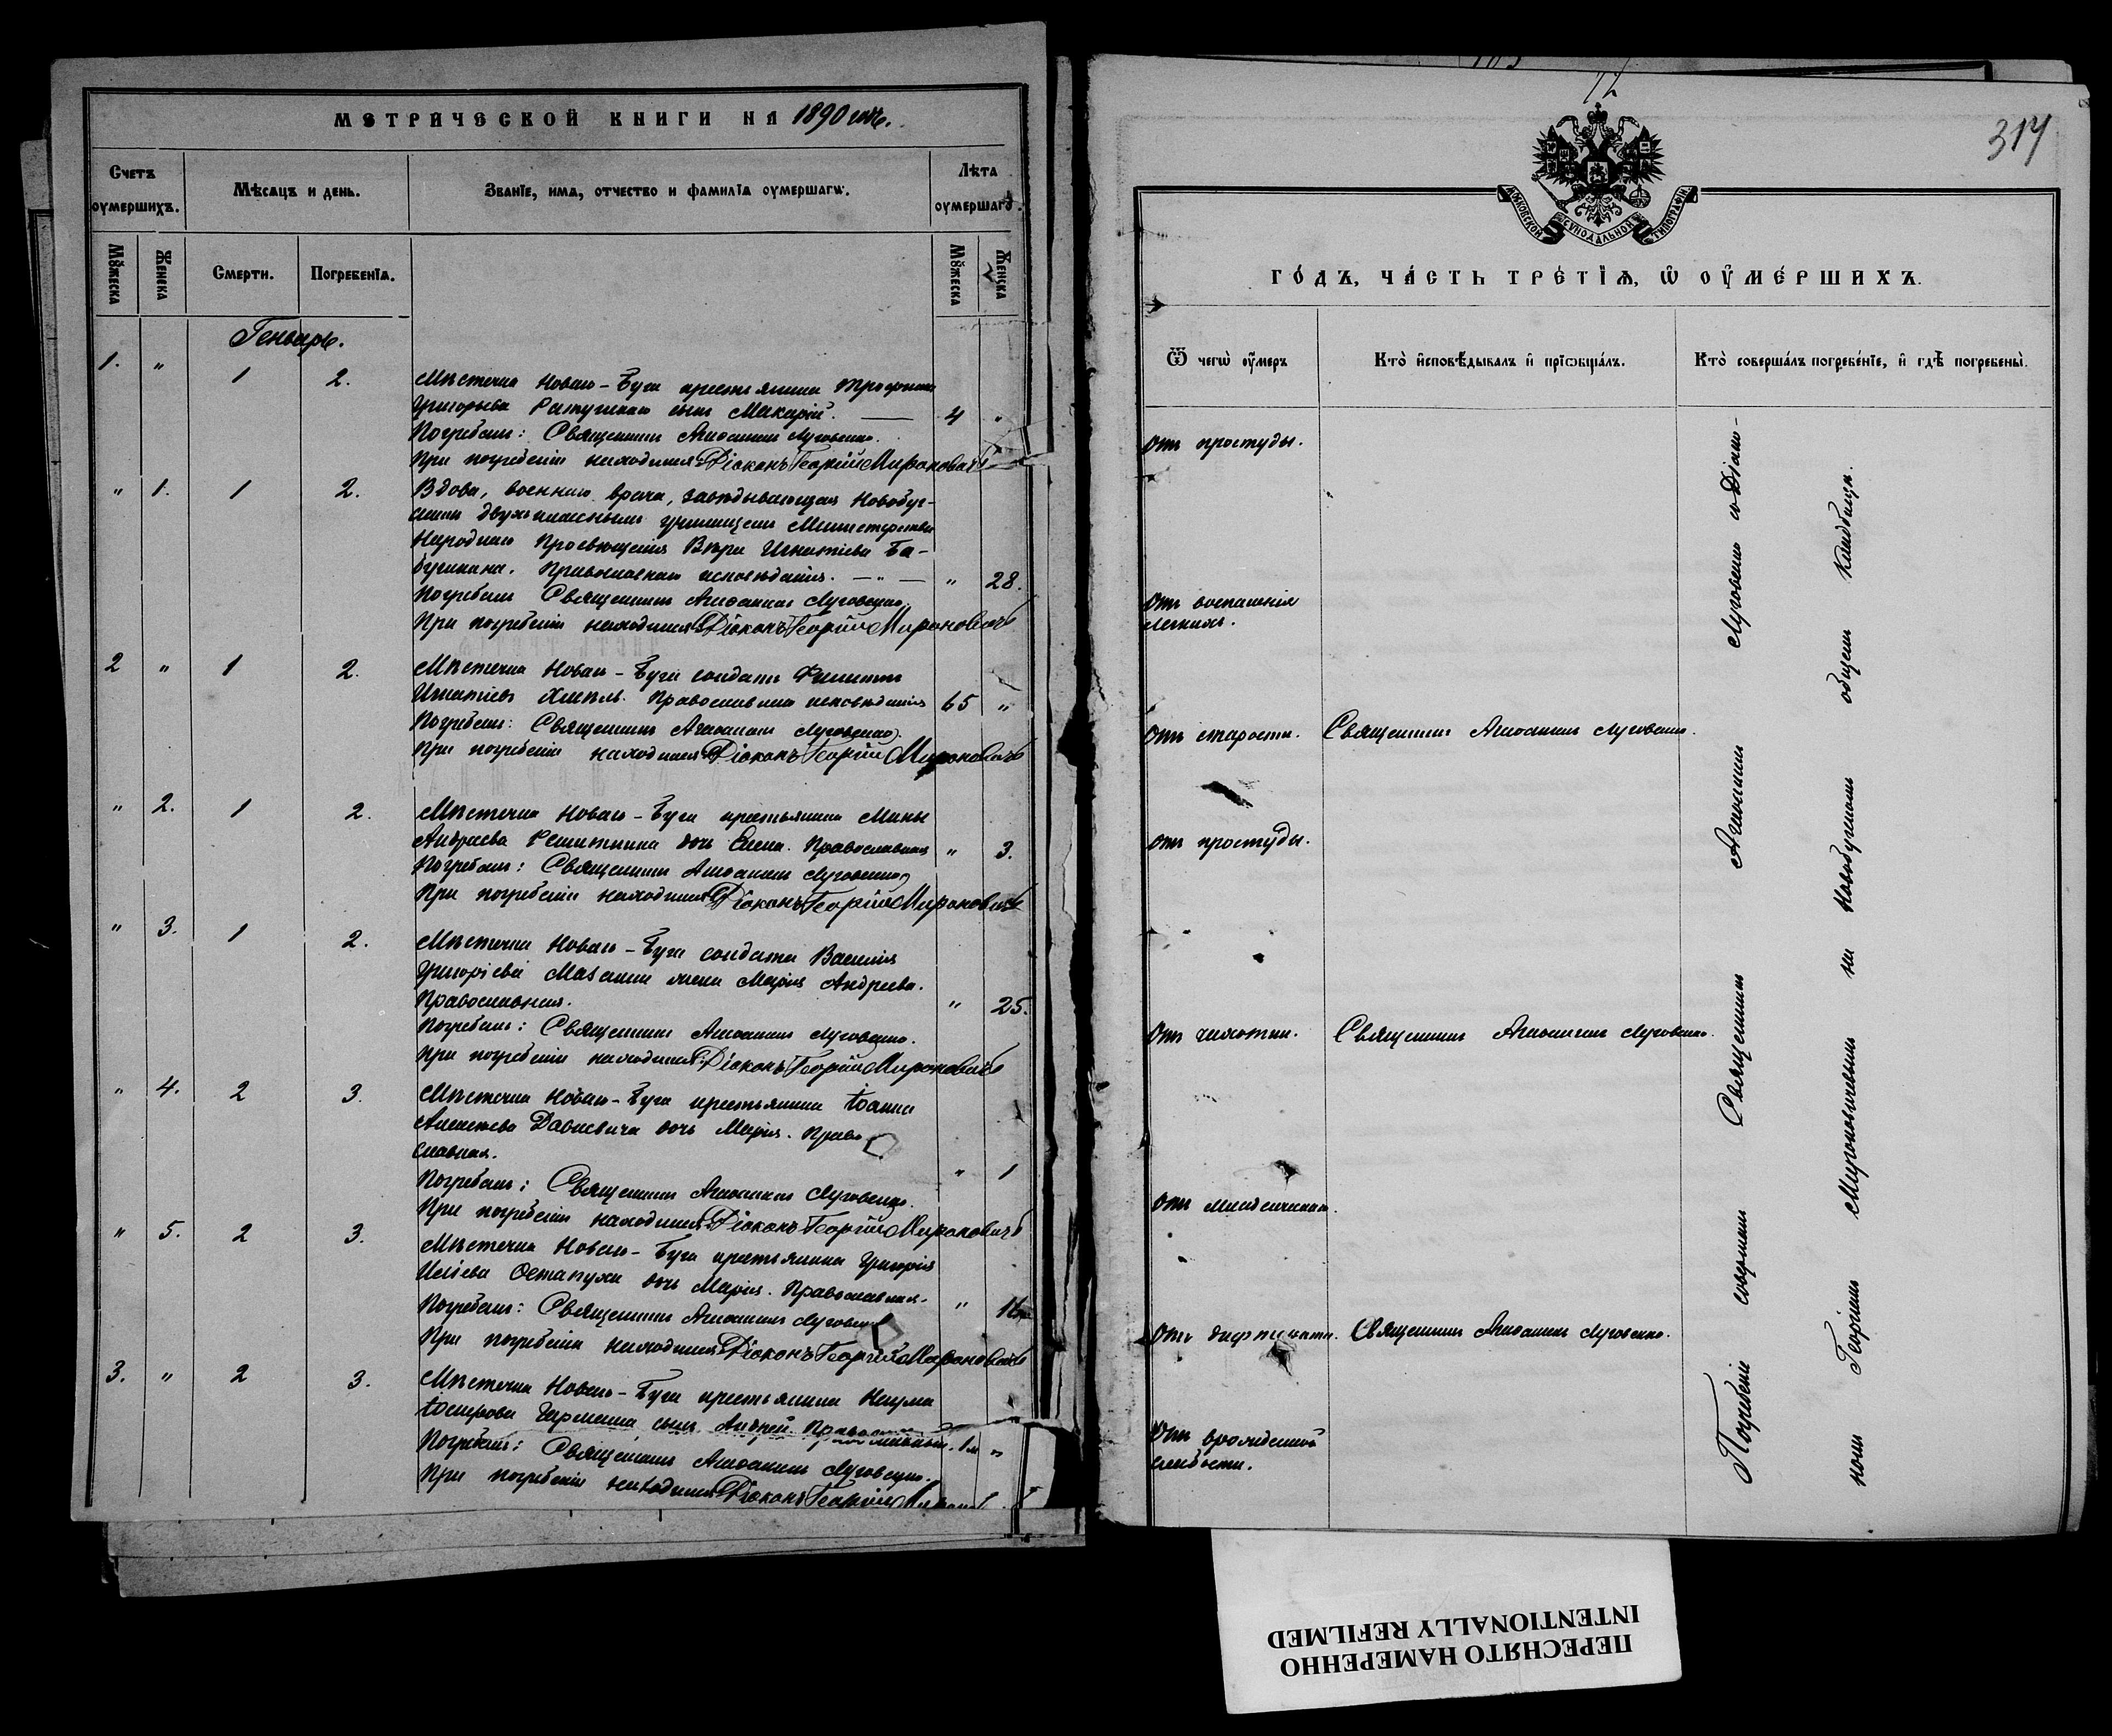 МЕТРИЧЕСКОЙ КНИГИ НА 1890 годъ.
Счетъ оумершихъ.
Мѣсяцъ и день.
Званїе, имѧ, отчество и фамилїѧ оумершагѡ.
Лѣта оумершагѡ.
Мꙋжеска
Женска
Смерти.
Погребенїѧ.
Мꙋжеска
Женска
Генварь.
1. " 1 2.
Мѣстечка Новаго-Буга крестьянина Трофима
Григорьева Ратушнаго сынъ Макарій. — 4 "
Погребалъ: Священникъ Аѳанасій Луговенко.
При погребеніи находился Діаконъ Георгій Мироновичъ
" 1. 1 2.
Вдова, военнаго врача, завѣдывающая Новобуг-
скимъ двухкласснымъ училищемъ Министерства
Народнаго Просвѣщенія Вѣра Игнатіева Ба-
бушкина. Православнаго исповѣданія. — " — " 28.
Погребалъ Священникъ Аѳанасій Луговенко.
При погребеніи находился Діаконъ Георгій Мироновичъ
2 " 1 2.
Мѣстечка Новаго-Буга солдатъ Филиппъ
Игнатіевъ Хмель. Православнаго исповѣданія 65 "
Погребалъ: Священникъ Аѳанасій Луговенко.
При погребеніи находился Діаконъ Георгій Мироновичъ
" 2. 1 2.
Мѣстечка Новаго-Буга крестьянина Мины
Андреева дочь Елена. Православная " 3.
Погребалъ: Священникъ Аѳанасій Луговенко
При погребеніи находился Діаконъ Георгій Мироновичъ
" 3. 1 2.
Мѣстечка Новаго-Буга солдата Василія
Григоріева жена Марія Андреева.
Православная. " 25.
Погребалъ: Священникъ Аѳанасій Луговенко.
При погребеніи находился Діаконъ Георгій Мироновичъ
" 4. 2 3.
Мѣстечка Новаго-Буга крестьянина Іоанна
Дависевича дочь Марія. Право
славная. " 1
Погребалъ: Священникъ Аѳанасій Луговенко.
При погребеніи находился Діаконъ Георгій Мироновичъ
" 5. 2 3.
Мѣстечка Новаго-Буга крестьянина Григорія
Иліева Остапухи дочь Марія. Православная. "
Погребалъ: Священникъ Аѳанасій Луговенко
При погребеніи находился Діаконъ Георгій Мироновичъ
3. " 2 3.
Мѣстечка Новаго-Буга крестьянина Наума
сынъ Андрей. Православный. 1м "
Погребалъ: Священникъ Аѳанасій Луговенко.
При погребеніи находился Діаконъ Георгій
314
МОСКОВСКОЙ СѴНОДАЛЬНОЙ ТИПОГРАФІИ
ГО́ДЪ, ЧА́СТЬ ТРЕ́ТЇѦ, Ѡ҆ ОУ҆МЕ́РШИХЪ.
Ѿ чегѡ̀ оу҆́меръ
Кто̀ и҆сповѣ́дывалъ и҆ прїѡбща́лъ.
Кто̀ соверша́лъ погребе́нїе, и҆ гдѣ̀ погребены̀.
Отъ простуды.
Отъ воспаленія
легкихъ.
Отъ старости. Священникъ Аѳанасій Луговенко.
Отъ простуды.
Отъ чахотки. Священникъ Аѳанасій Луговенко.
Отъ младенческой.
Отъ дифтерита. Священникъ Аѳанасій Луговенко.
Отъ врожденной
слабости.
Погребеніе совершалъ Священникъ Аѳанасій Луговенко съ Діако-
номъ Георгіемъ Мироновичемъ на Новобугскомъ общемъ кладбищѣ.
ПЕРЕСНЯТО НАМЕРЕННО
INTENTIONALLY REFILMED